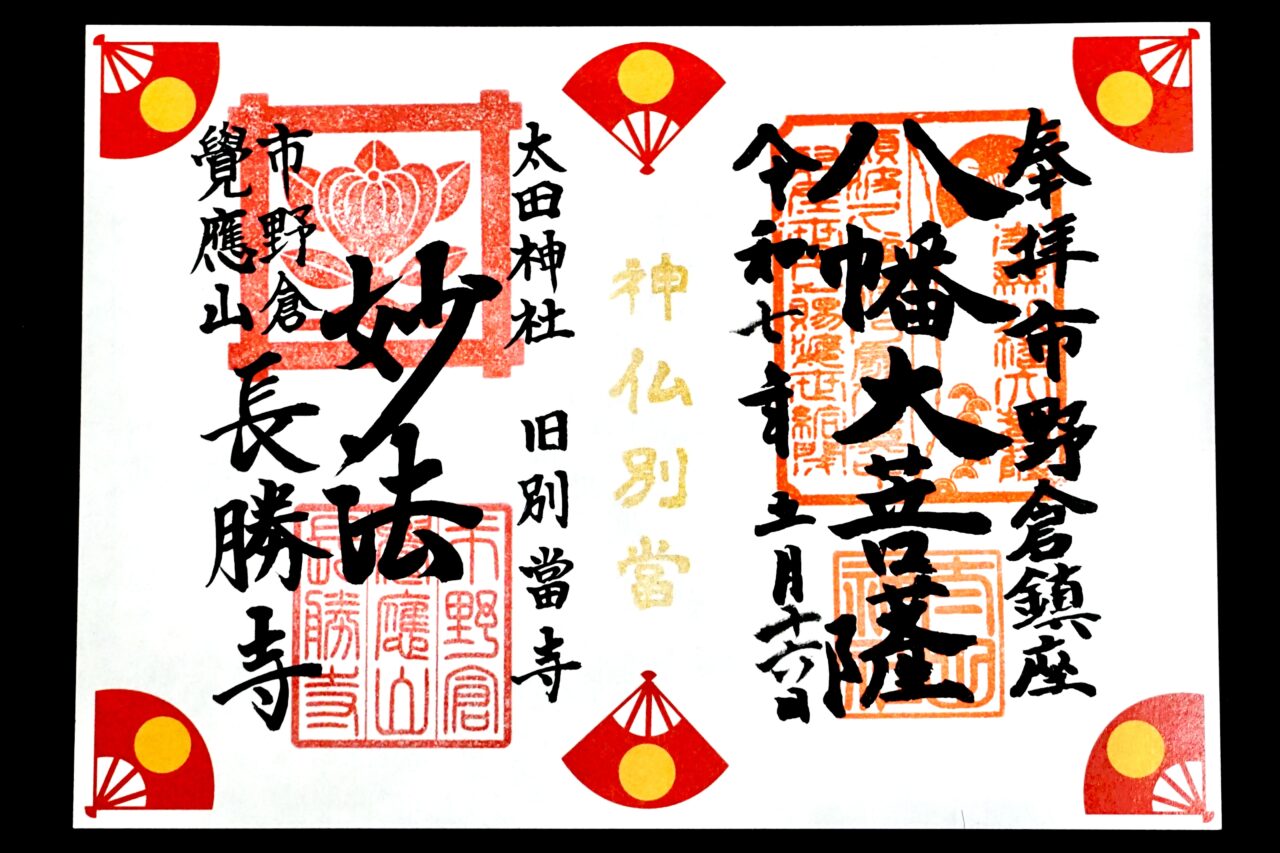 奉拝市野倉鎮座
八幡大菩薩
令和七年五月十六日
神仏別當
太田神社 旧別當寺
妙法
市野倉
覺應山
長勝寺
市野倉
覺應山
長勝寺